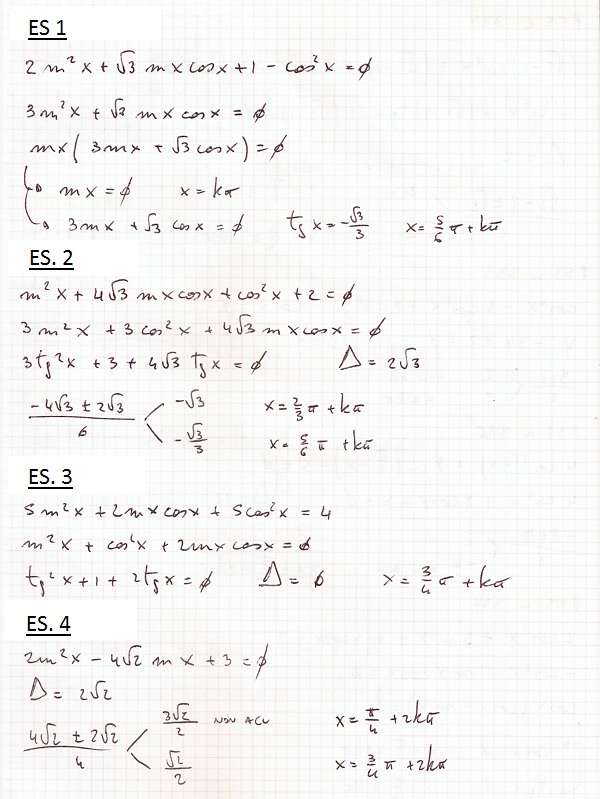 ES 1
2 m²x + √3 mx cosx + 1 - cos²x = 0
3m²x + √3 mx cosx = 0
mx( 3mx + √3 cosx) = 0
mx = 0 x = kπ
3mx + √3 cosx = 0 tg x = -√3/3 x = 5/6 π + kπ
ES. 2
m²x + 4√3 mx cosx + cos²x + 2 = 0
3m²x + 3cos²x + 4√3 mx cosx = 0
3tg²x + 3 + 4√3 tg x = 0 Δ = 2√3
(-4√3 ± 2√3)/6 -√3 x = 2/3 π + kπ
-√3/3 x = 5/6 π + kπ
ES. 3
5m²x + 2mx cosx + 5cos²x = 4
m²x + cos²x + 2mx cosx = 0
tg²x + 1 + 2tg x = 0 Δ = 0 x = 3/4 π + kπ
ES. 4
2m²x - 4√2 mx + 3 = 0
Δ = 2√2
(4√2 ± 2√2)/4 3√2/2 NON ACC x = π/4 + 2kπ
√2/2 x = 3/4 π + 2kπ